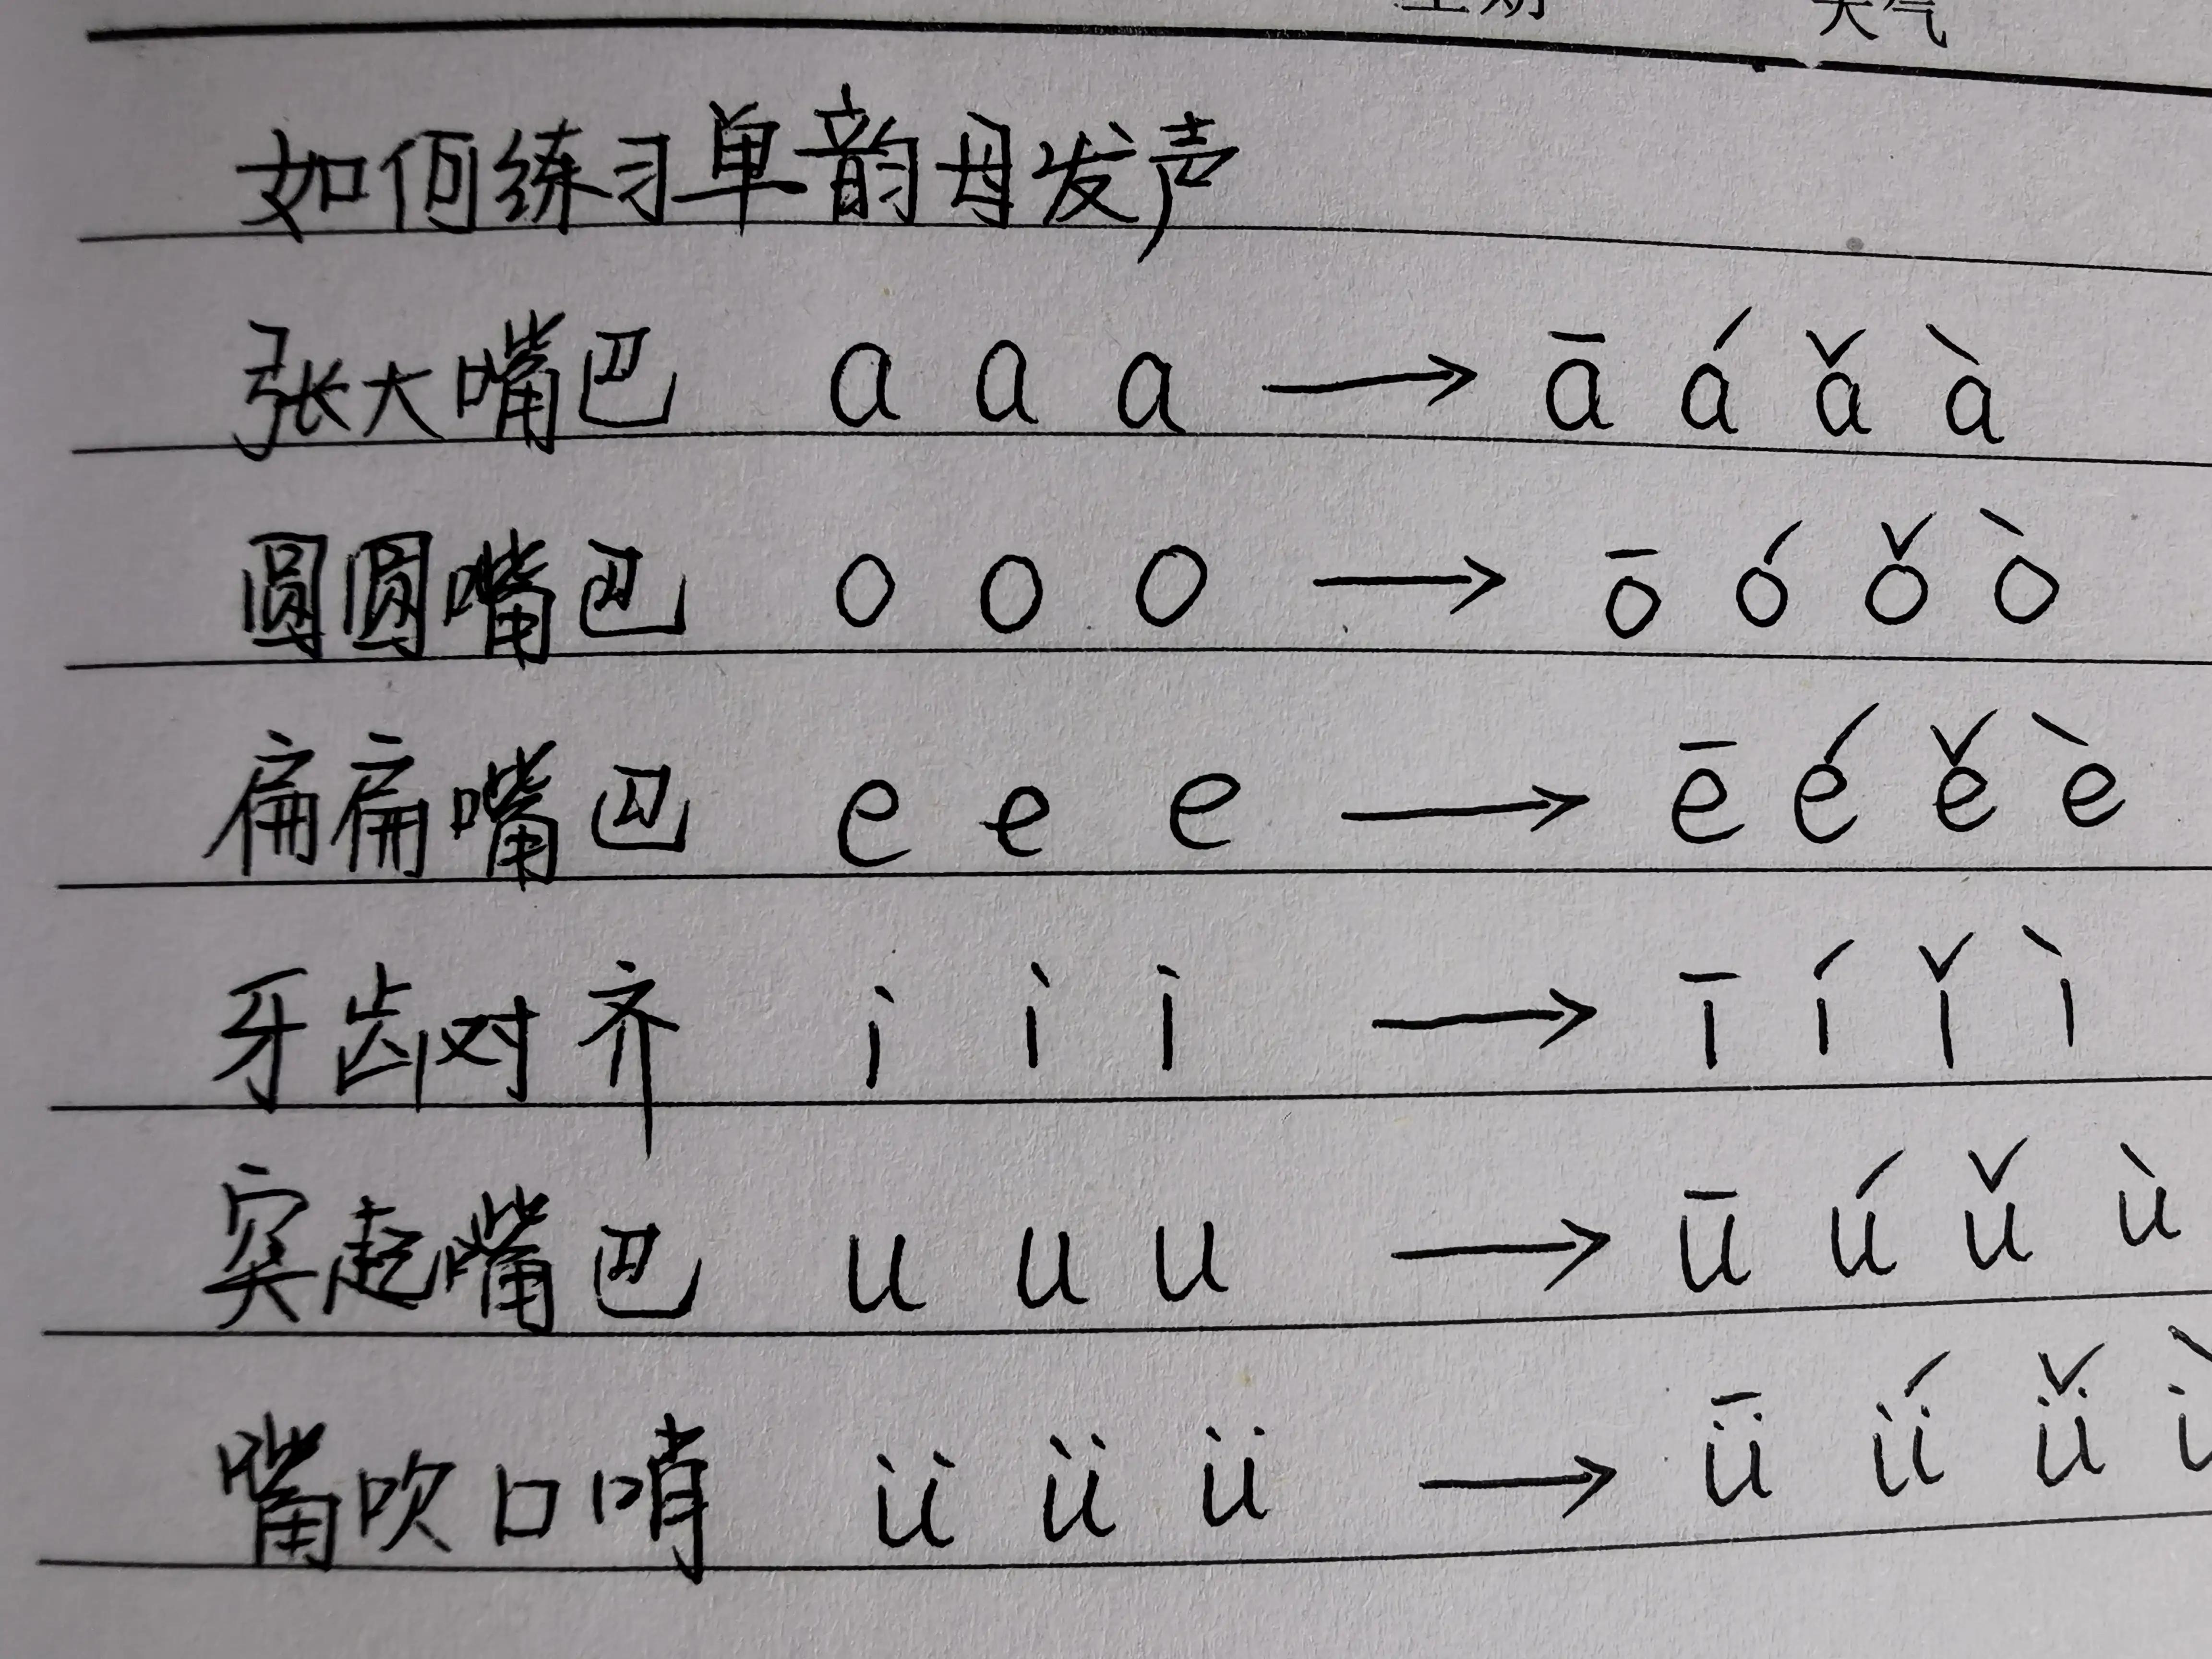 天气
如何练习单韵母发声
张大嘴巴 a a a → ā á ǎ à
圆圆嘴巴 o o o → ō ó ǒ ò
扁扁嘴巴 e e e → ē é ě è
牙齿对齐 i i i → ī í ǐ ì
突起嘴巴 u u u → ū ú ǔ ù
嘴吹口哨 ü ü ü → ǖ ǘ ǚ